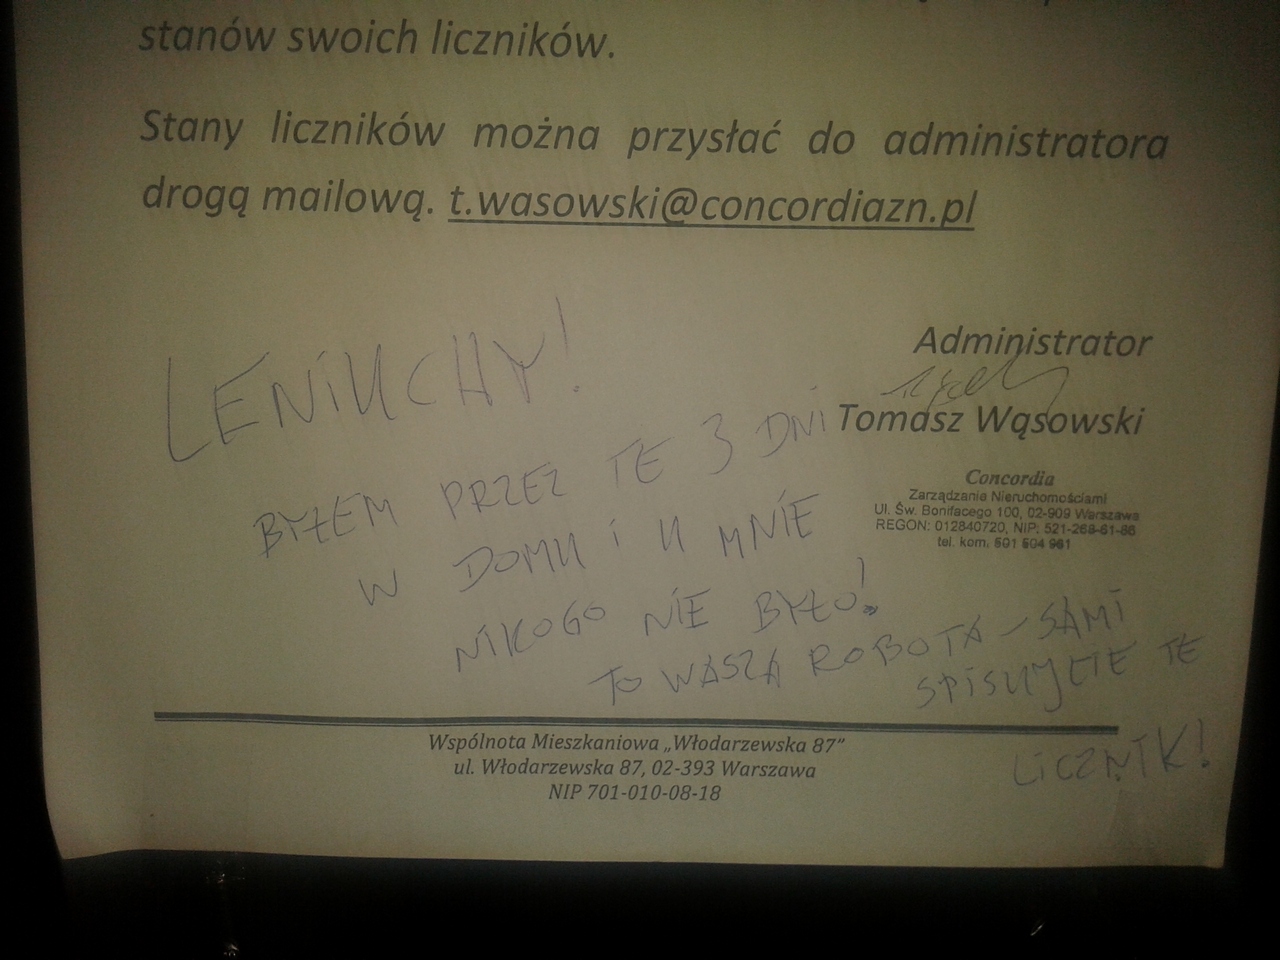 stanów swoich liczników.
Stany liczników można przysłać do administratora
drogą mailową. t.wasowski@concordiazn.pl
LENIUCHY!
Administrator
Tomasz Wąsowski
BYŁEM PRZEZ TE 3 DNI
W DOMU i U MNIE
NIKOGO NIE BYŁO!
TO WASZA ROBOTA - SAMI
SPISUJCIE TE
LICZNIK!
Concordia
Zarządzanie Nieruchomościami
Ul. Św. Bonifacego 100, 02-909 Warszawa
REGON: 012840720, NIP: 521-268-61-86
tel. kom. 501 504 961
Wspólnota Mieszkaniowa „Włodarzewska 87”
ul. Włodarzewska 87, 02-393 Warszawa
NIP 701-010-08-18